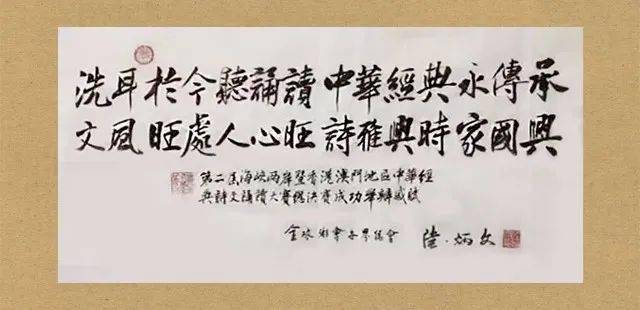 洗耳於今聽誦讀 中華經典永傳承
文風旺處人心旺 詩雅興時家國興
第二屆海峽兩岸暨香港澳門地區中華經
典詩文誦讀大賽總決賽成功舉辦感賦
陸·炳文